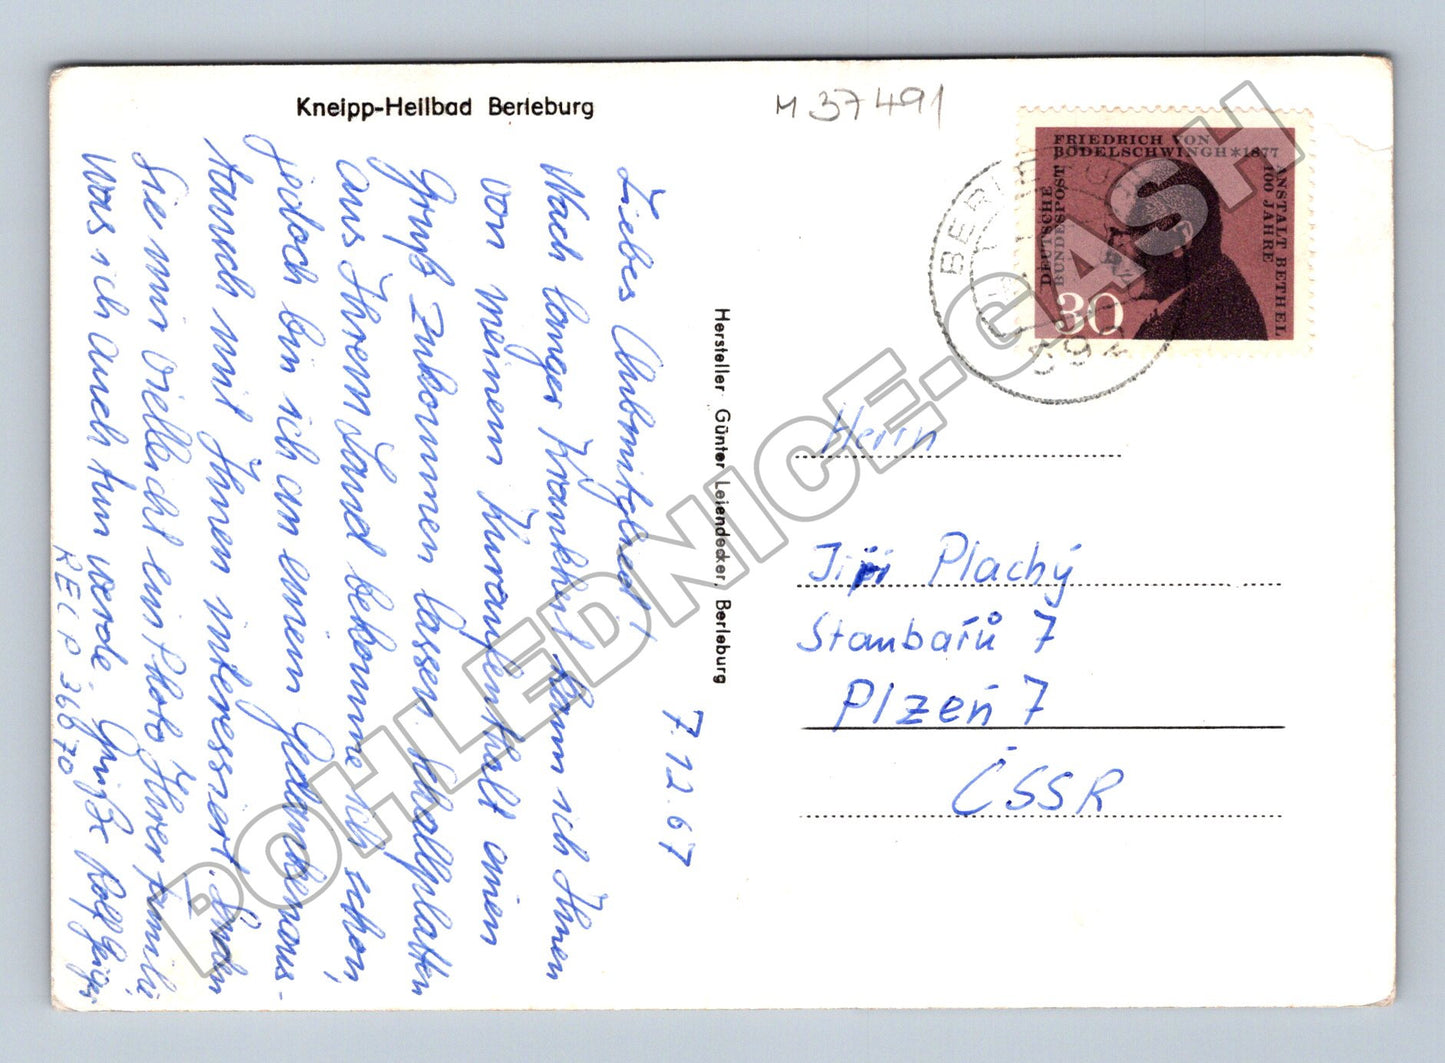 Kneipp-Heilbad Berleburg
M 37491
FRIEDRICH VON
BODELSCHWINGH*1877
ANSTALT BETHEL
100 JAHRE
DEUTSCHE
BUNDESPOST
30
7.12.67
Liebes Clubmitglied!
Nach langer Krankheit kann ich Ihnen
von meinem Kuraufenthalt einen
Gruß zukommen lassen. Schallplatten
aus Ihrem Land bekomme ich schon,
jedoch bin ich an einem Gedankenaus-
tausch mit Ihnen interessiert. Senden
Sie mir vielleicht ein Photo Ihrer Familie
was ich auch tun werde. Grüße Rolf
RECP 36670
Hersteller Günter Leiendecker, Berleburg
Herrn
Jiří Plachý
Stanbařů 7
Plzeň 7
ČSSR
POHLEDNICE-CASH